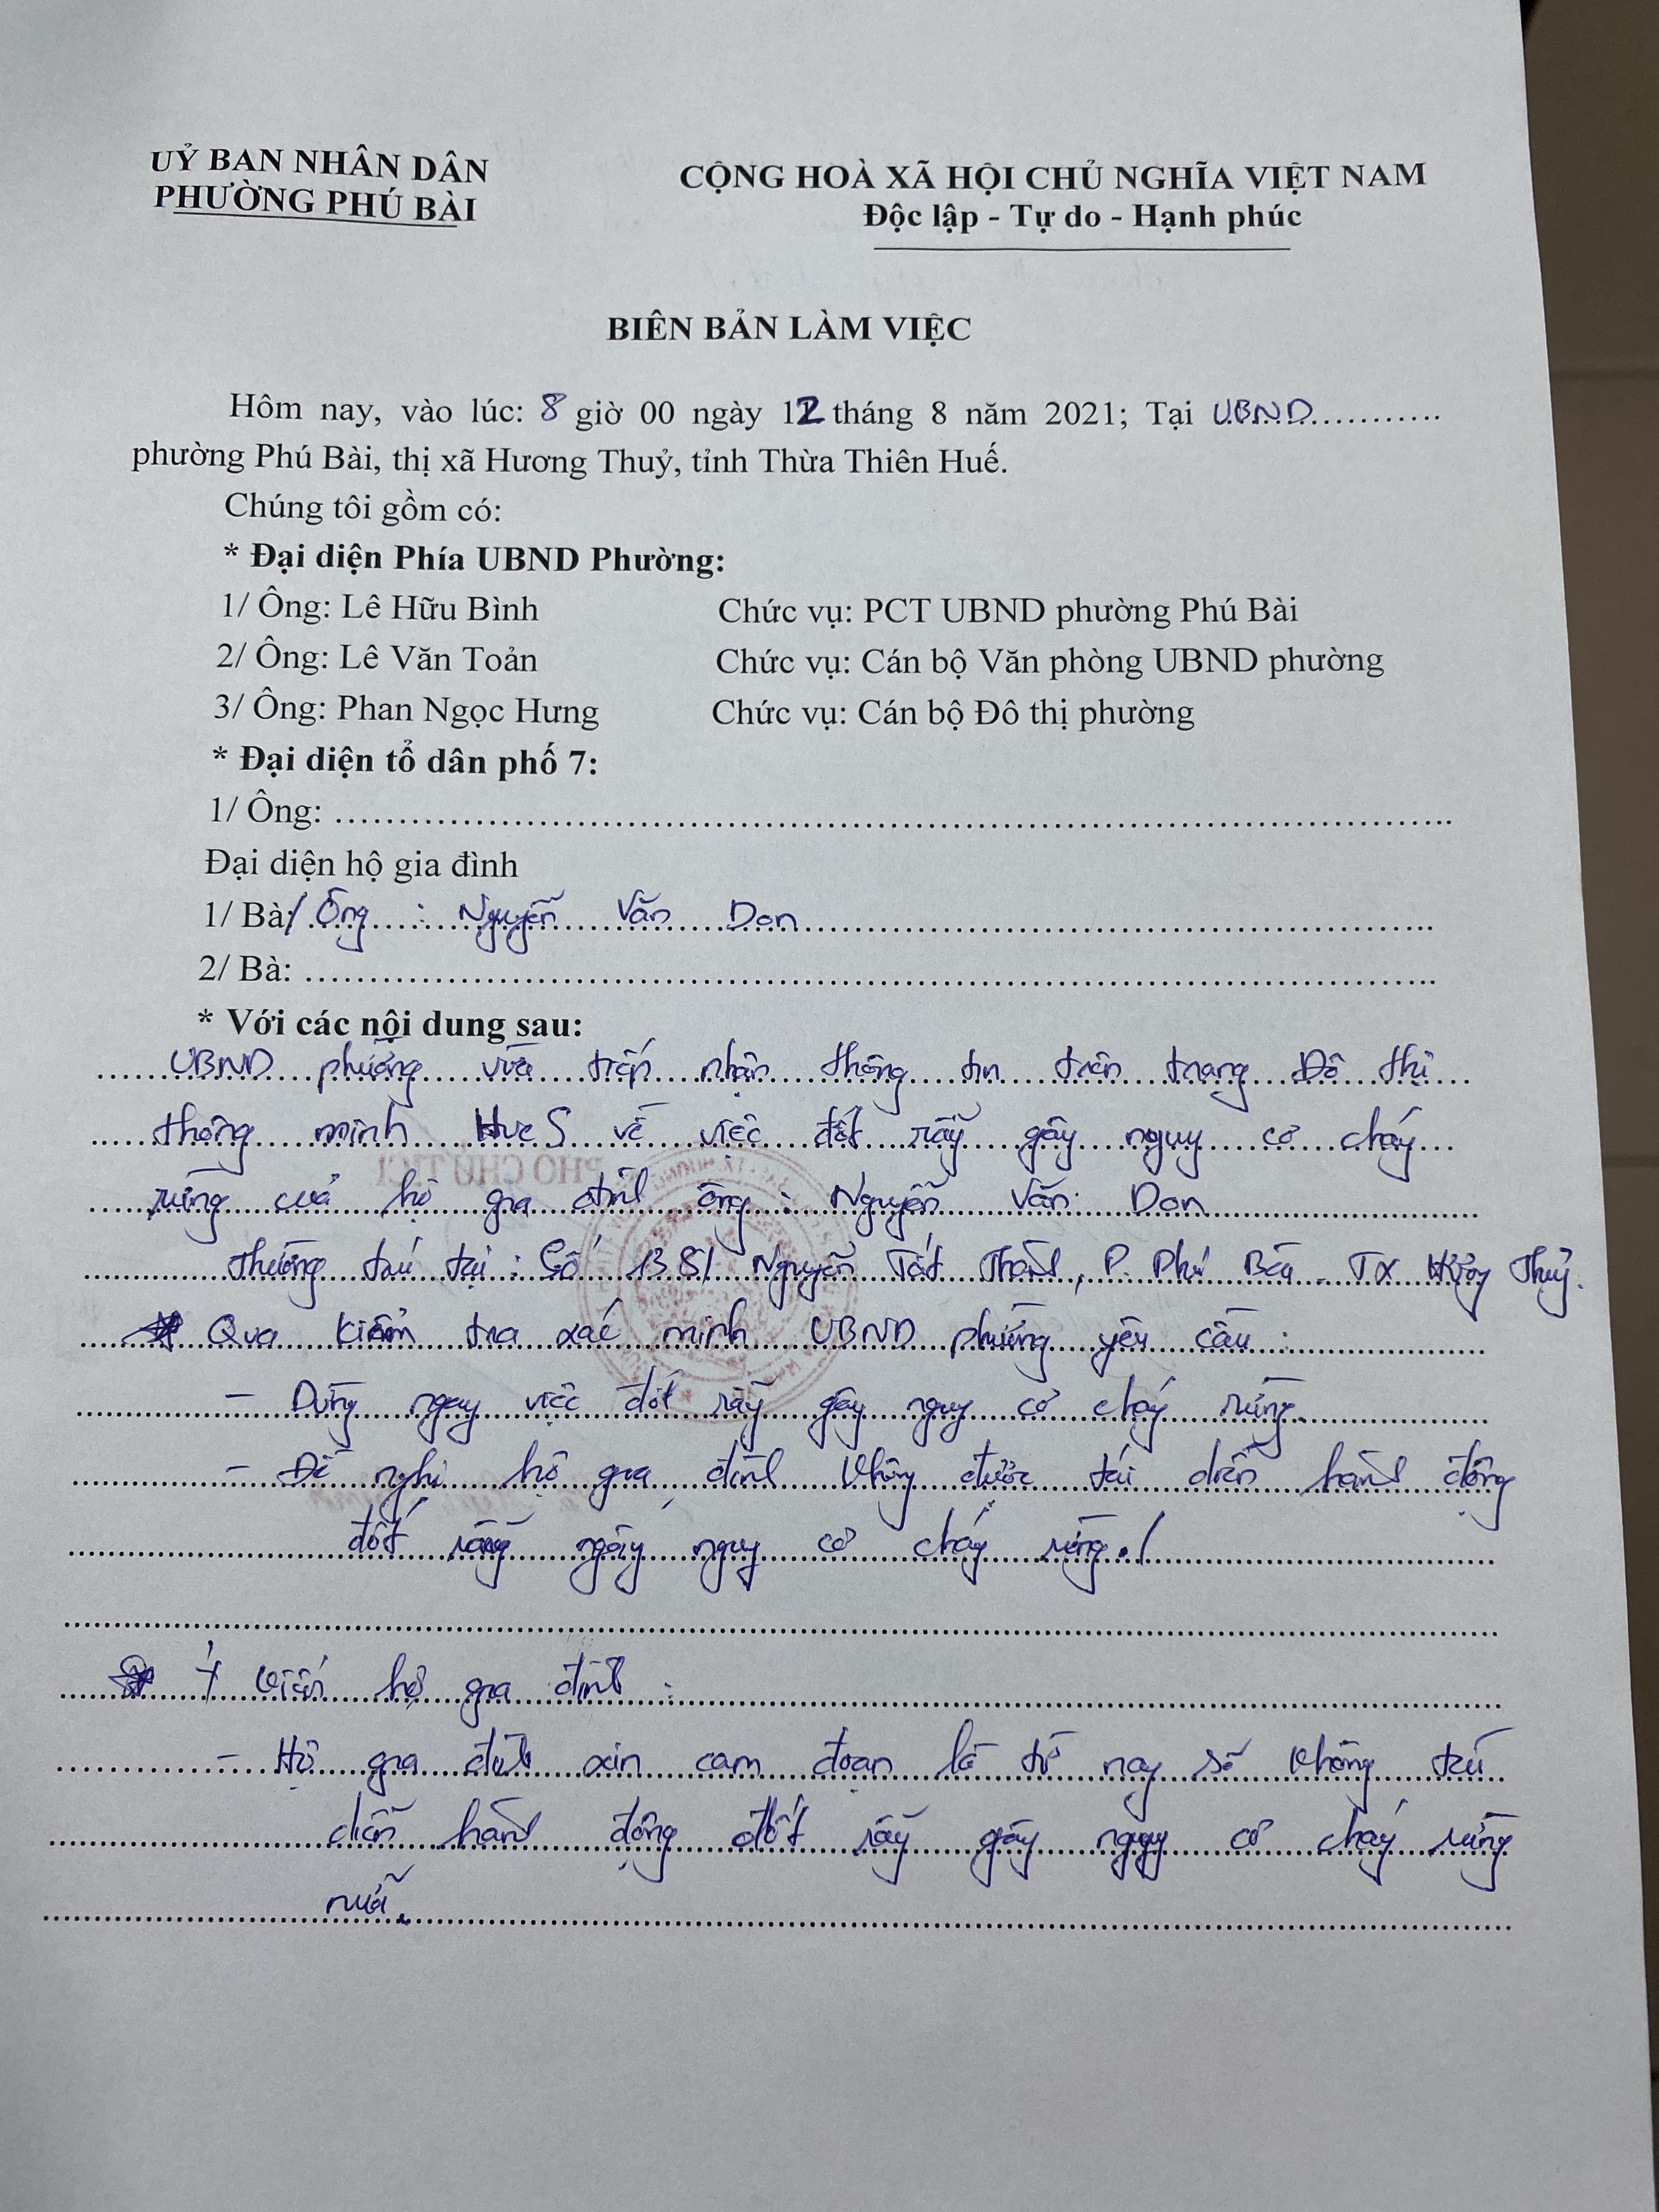 UỶ BAN NHÂN DÂN
PHƯỜNG PHÚ BÀI
CỘNG HOÀ XÃ HỘI CHỦ NGHĨA VIỆT NAM
Độc lập - Tự do - Hạnh phúc
BIÊN BẢN LÀM VIỆC
Hôm nay, vào lúc: 8 giờ 00 ngày 12 tháng 8 năm 2021; Tại UBND...........
phường Phú Bài, thị xã Hương Thuỷ, tỉnh Thừa Thiên Huế.
Chúng tôi gồm có:
* Đại diện Phía UBND Phường:
1/ Ông: Lê Hữu Bình Chức vụ: PCT UBND phường Phú Bài
2/ Ông: Lê Văn Toản Chức vụ: Cán bộ Văn phòng UBND phường
3/ Ông: Phan Ngọc Hưng Chức vụ: Cán bộ Đô thị phường
* Đại diện tổ dân phố 7:
1/ Ông: ..........
Đại diện hộ gia đình
1/ Bà/ Ông : Nguyễn Văn Don
2/ Bà: ..........
* Với các nội dung sau:
UBND phường vừa tiếp nhận thông tin trên trang Đô thị
thông minh HueS về việc đốt rẫy gây nguy cơ cháy
rừng của hộ gia đình ông : Nguyễn Văn Don
Thường trú tại : Số 1381 Nguyễn Tất Thành, P. Phú Bài - TX Hương Thuỷ.
* Qua kiểm tra xác minh UBND phường yêu cầu :
- Dừng ngay việc đốt rẫy gây nguy cơ cháy rừng.
- Đề nghị hộ gia đình không được tái diễn hành động
đốt rẫy gây nguy cơ cháy rừng./
* Ý kiến hộ gia đình :
- Hộ gia đình xin cam đoạn là từ nay sẽ không tái
diễn hành động đốt rẫy gây nguy cơ cháy rừng
nữa.